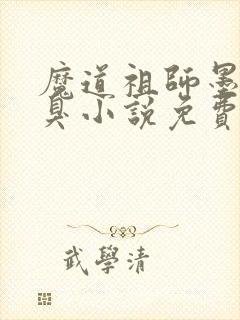 魔道祖師墨
臭小說免費
武學清